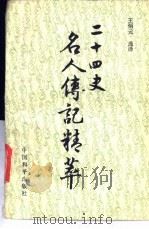 选译
二十四史
名人傳記精萃
中国和平出版社